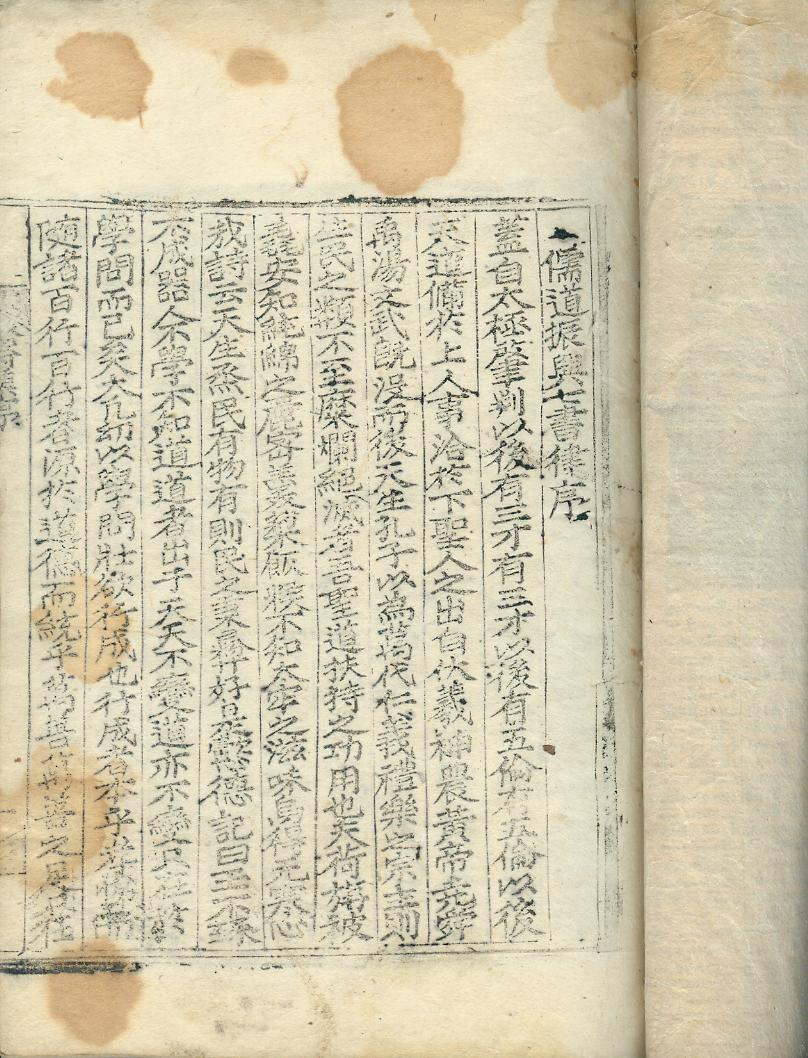 儒道振興七書律序
蓋自太極肇判以後有三才有三才以後有五倫有五倫以後
天道備於上人事洽於下聖人之出自伏羲神農黃帝堯舜
禹湯文武旣沒而後天生孔子以爲萬代仁義禮樂之宗主則
生民之類不至糜爛絕滅者吾聖道扶持之功用也夫荷旃被
毳安知純綿之麗密羹藜飯糗不知太牢之滋味烏得无襃忘
哉詩云天生烝民有物有則民之秉彝好是懿德記曰玉不琢
不成器人不學不知道道者出乎天天不變道亦不變只在於
學問而已矣大凡幼以學問壯欲行成也行成者本乎孝悌而
隨諸百行百行者源於道德而統乎萬善萬善之用在